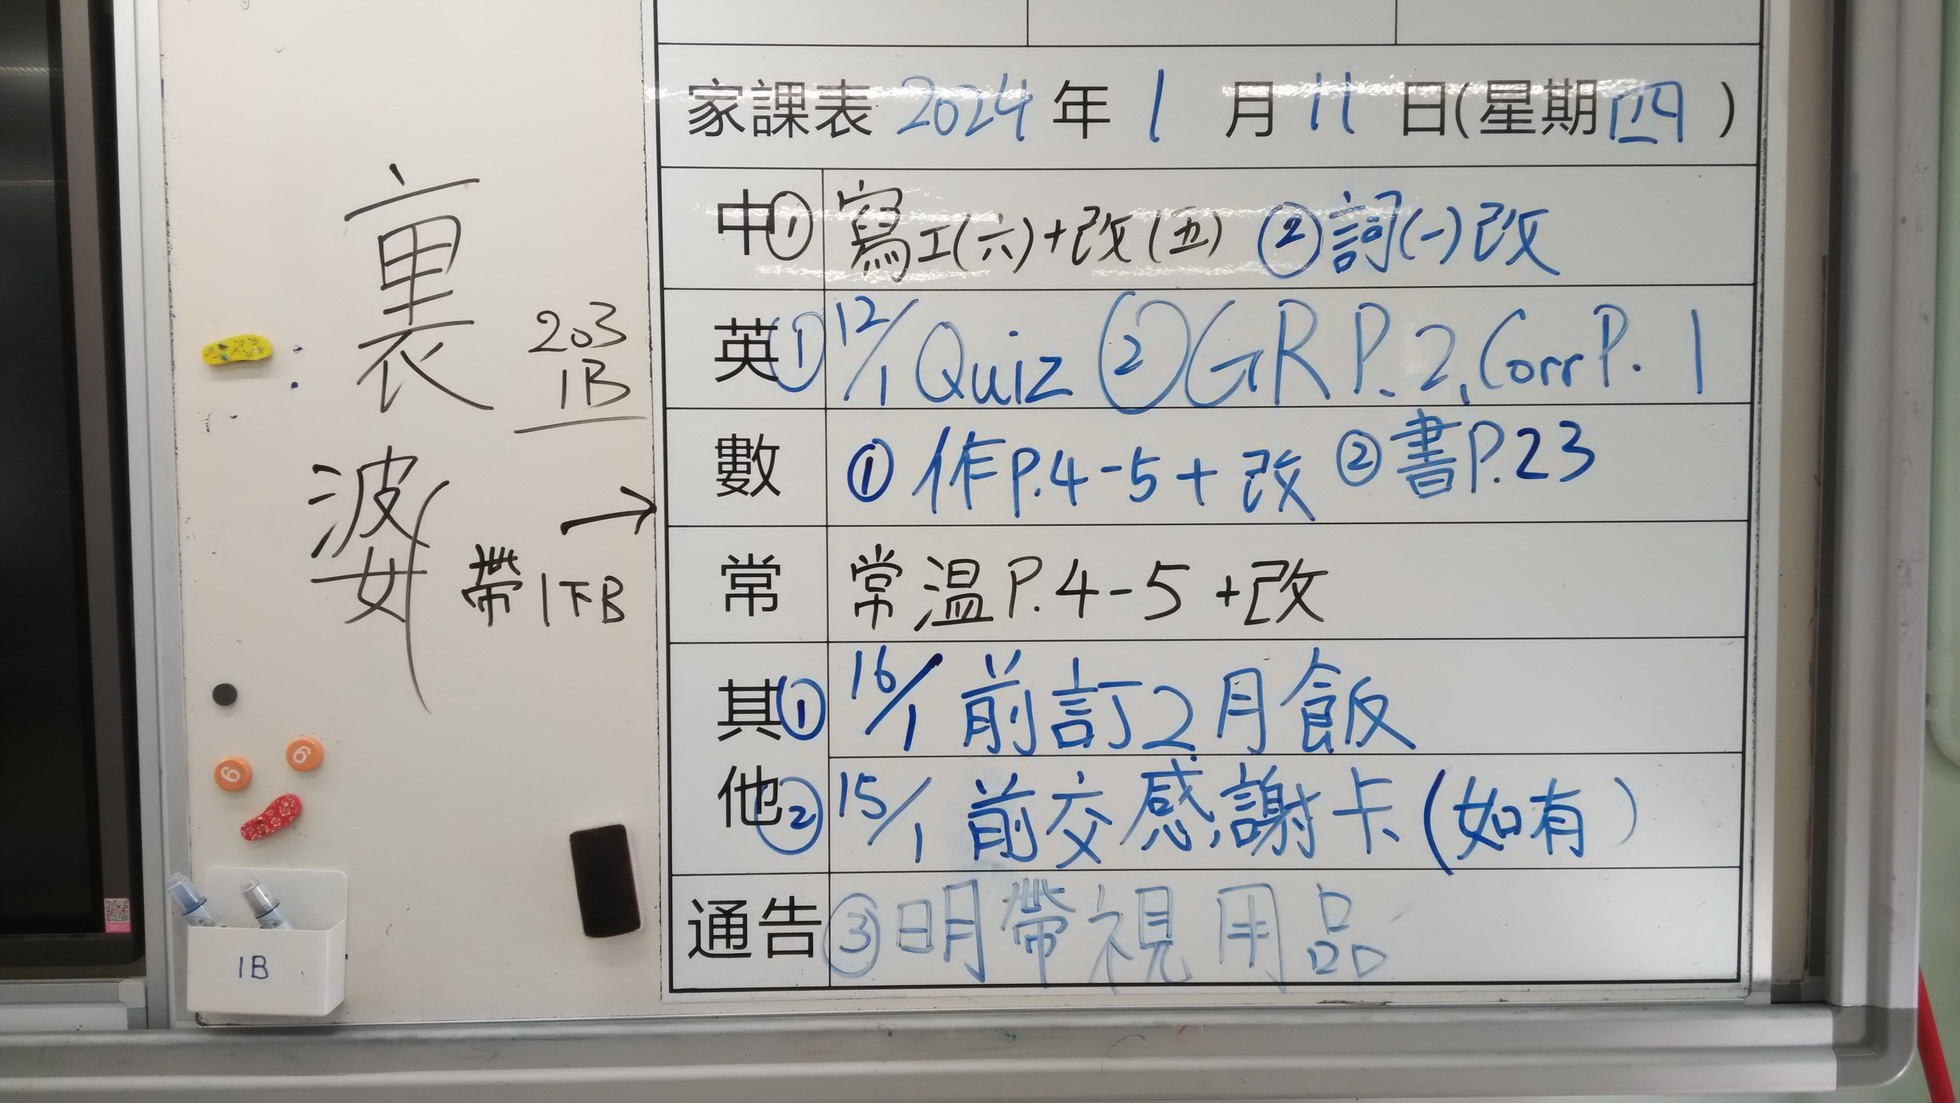 家課表 2024 年 1 月 11 日(星期四)
中① 寫工(六)+改(五) ②詞(一)改
英① 12/1 Quiz ②GR P.2, Corr P.1
數 ① 作P.4-5+改 ②書P.23
常 常溫P.4-5+改
其他① 16/1 前訂2月飯
② 15/1 前交感謝卡(如有)
通告 ③明帶視用品
裏
婆
203
1B
→
帶1下B
6
6
1B